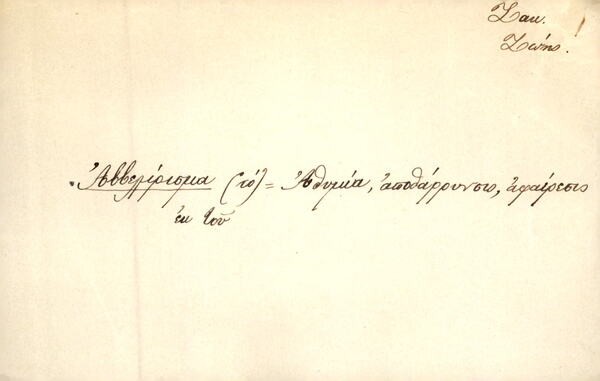 Ζακ.
Ζώης.
Ἀββελίρισμα (τό) = Ἀθυμία, ἀποθάρρυνσις, ἀφαίρεσις
ἐκ τοῦ